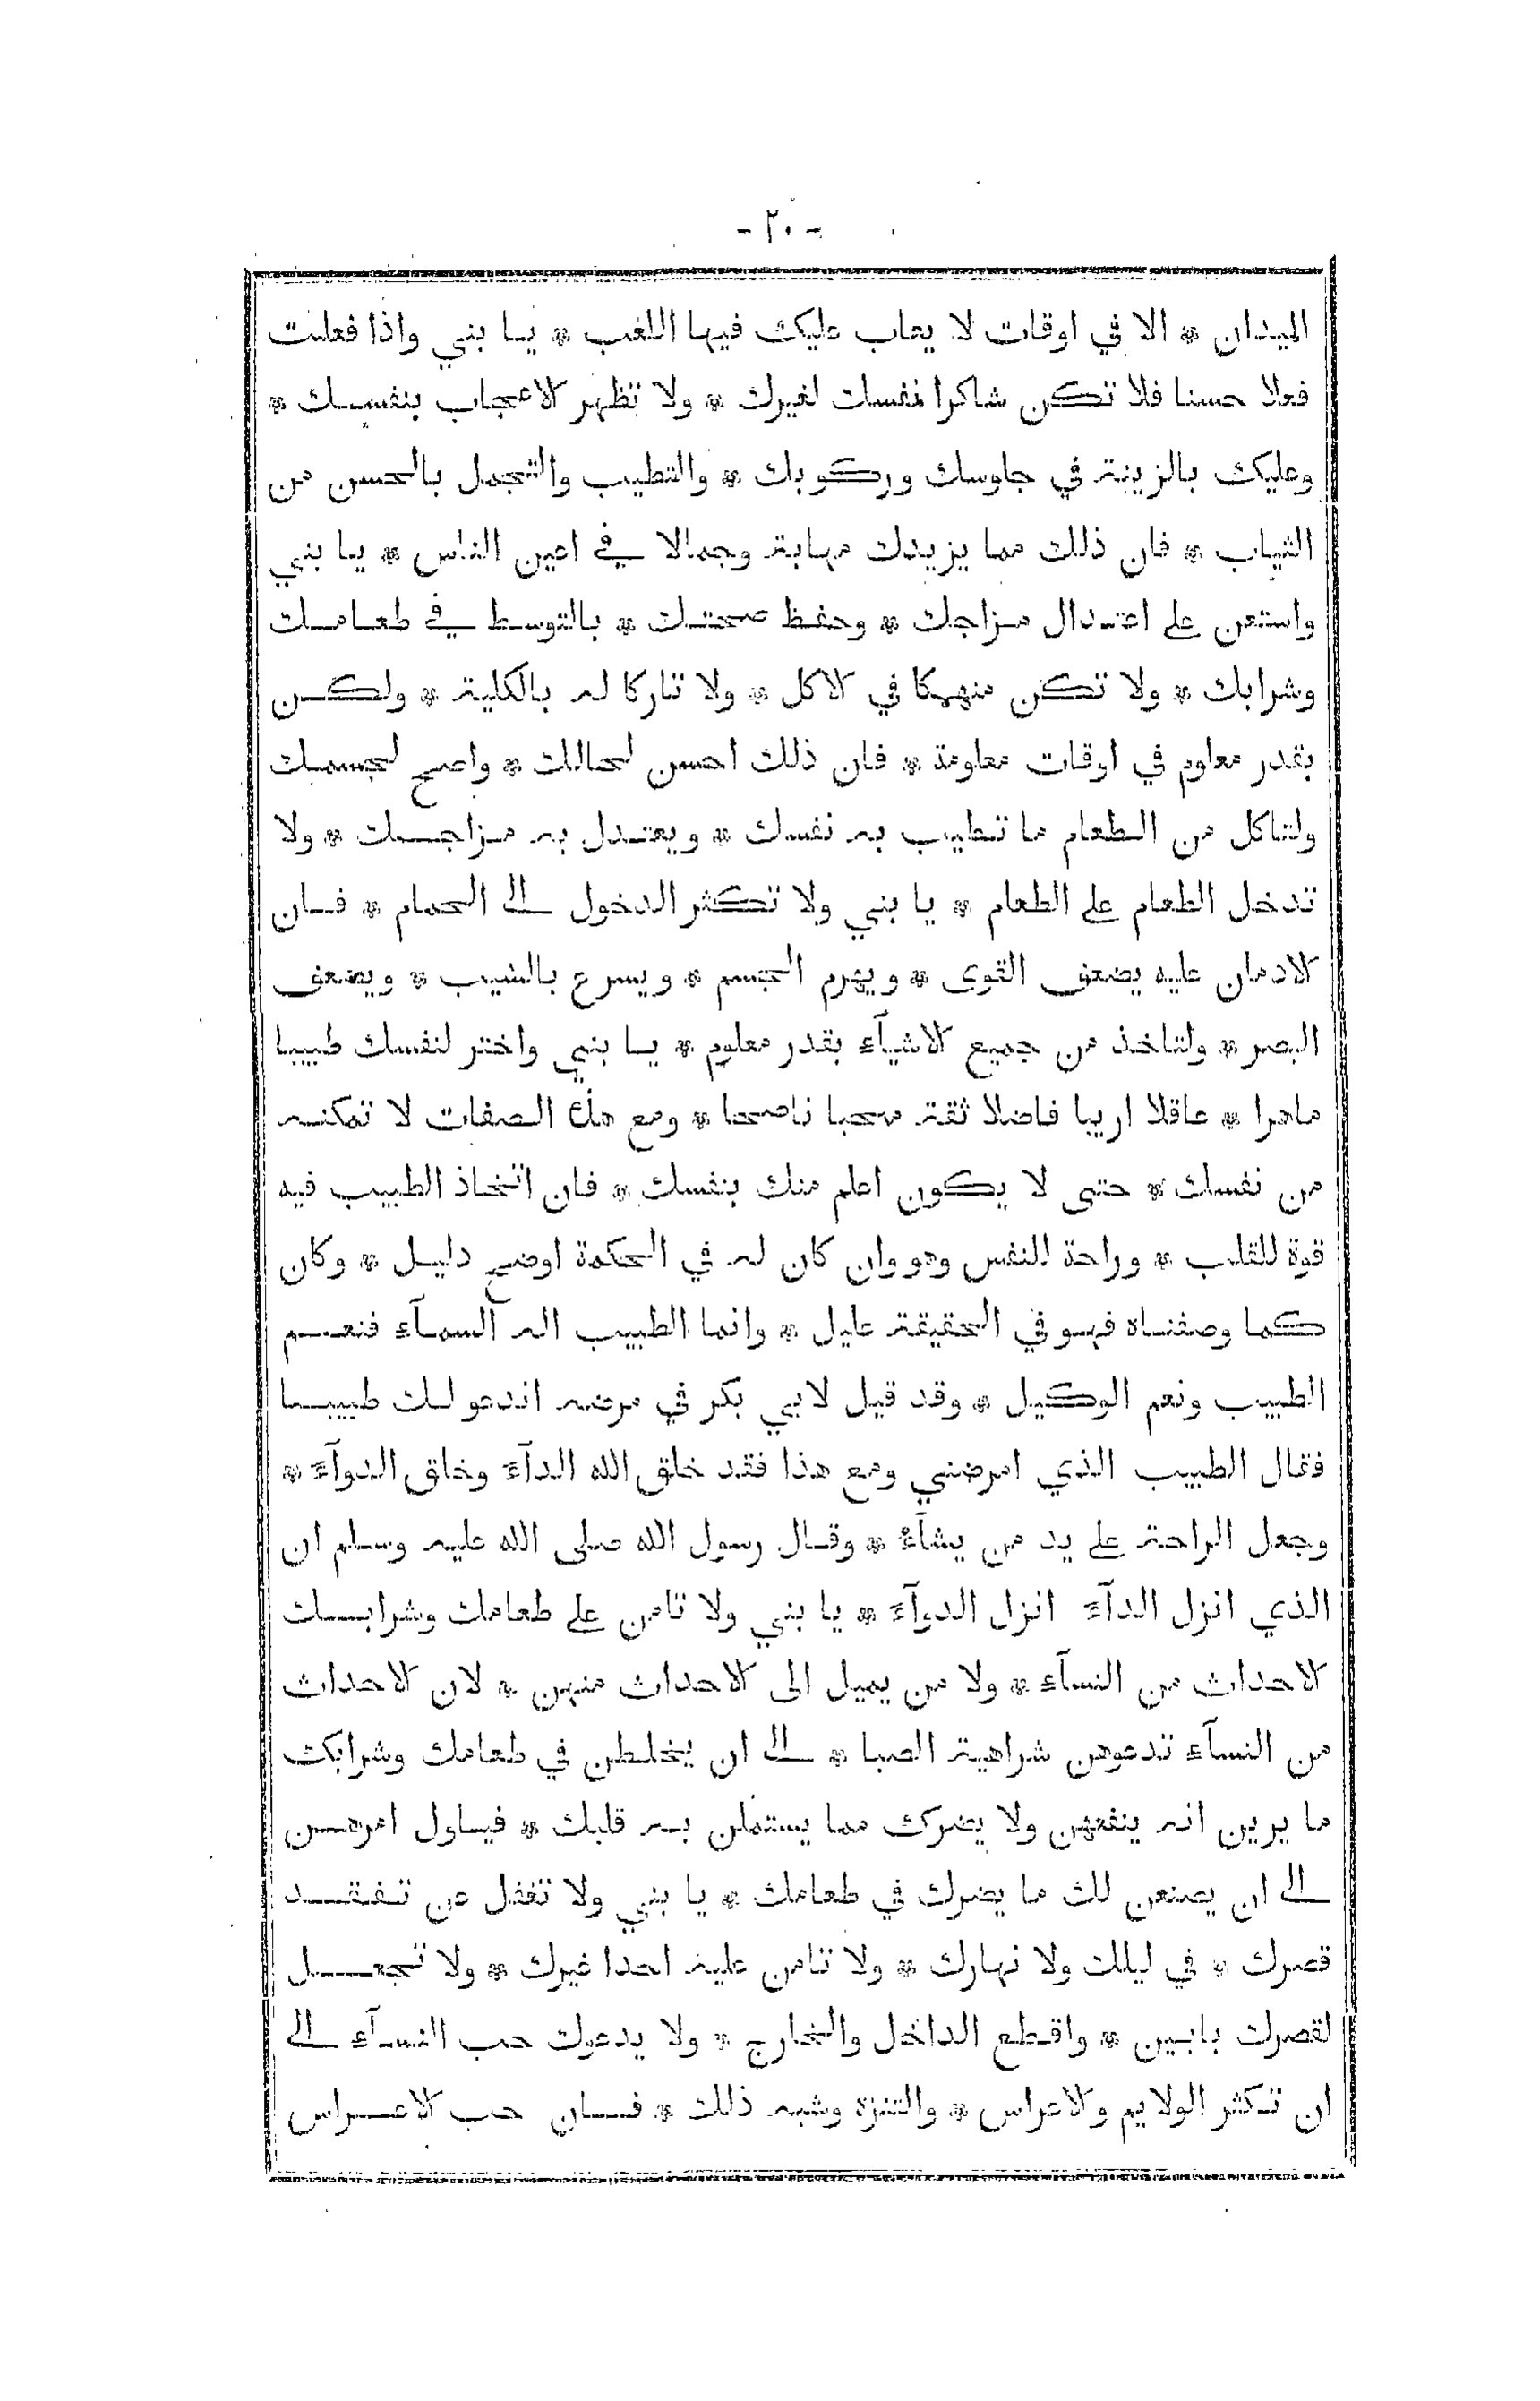 - ٢٠ -
الميدان * الا في اوقات لا يعاب عليك فيها اللعب * يا بني واذا فعلت
فعلا حسنا فلا تكن شاكرا نفسك لغيرك * ولا تظهر الاعجاب بنفسك *
وعليك بالزينة في جلوسك وركوبك * والتطيب والتجمل بالحسن من
الثياب * فان ذلك مما يزيدك مهابة وجمالا في اعين الناس * يا بني
واستعن على اعتدال مزاجك * وحفظ صحتك * بالتوسط في طعامك
وشرابك * ولا تكن منهمكا في الاكل * ولا تاركا له بالكلية * ولكن
بقدر معلوم في اوقات معلومة * فان ذلك احسن لحالك * واصح لجسمك
ولتاكل من الطعام ما تطيب به نفسك * ويعتدل به مزاجك * ولا
تدخل الطعام على الطعام * يا بني ولا تكثر الدخول الى الحمام * فان
الادمان عليه يضعف القوى * ويهرم الجسم * ويسرع بالشيب * ويضعف
البصر * ولتاخذ من جميع الاشيآء بقدر معلوم * يا بني واختر لنفسك طبيبا
ماهرا * عاقلا اريبا فاضلا ثقة محبا ناصحا * ومع هذه الصفات لا تمكنه
من نفسك * حتى لا يكون اعلم منك بنفسك * فان اتخاذ الطبيب فيه
قوة للقلب * وراحة للنفس وهو وان كان له في الحكمة اوضح دليل * وكان
كما وصفناه فهو في الحقيقة عليل * وانما الطبيب اله السمآء فنعم
الطبيب ونعم الوكيل * وقد قيل لابي بكر في مرضه اندعو لك طبيبا
فقال الطبيب الذي امرضني ومع هذا فقد خلق الله الدآء وخلق الدوآء *
وجعل الراحة على يد من يشآء * وقال رسول الله صلى الله عليه وسلم ان
الذي انزل الدآء انزل الدوآء * يا بني ولا تامن على طعامك وشرابك
الاحداث من النسآء * ولا من يميل الى الاحداث منهن * لان الاحداث
من النسآء تدعوهن شراهية الصبا * الى ان يخلطن في طعامك وشرابك
ما يرين انه ينفعهن ولا يضرك مما يستملن به قلبك * فيـاول امرهن
الى ان يصنعن لك ما يضرك في طعامك * يا بني ولا تغفل عن تفقد
قصرك * في ليلك ولا نهارك * ولا تامن عليه احدا غيرك * ولا تجعل
لقصرك بابين * واقطع الداخل والخارج * ولا يدعوك حب النسآء الى
ان تكثر الولايم والاعراس * والتنزه وشبه ذلك * فان حب الاعراس